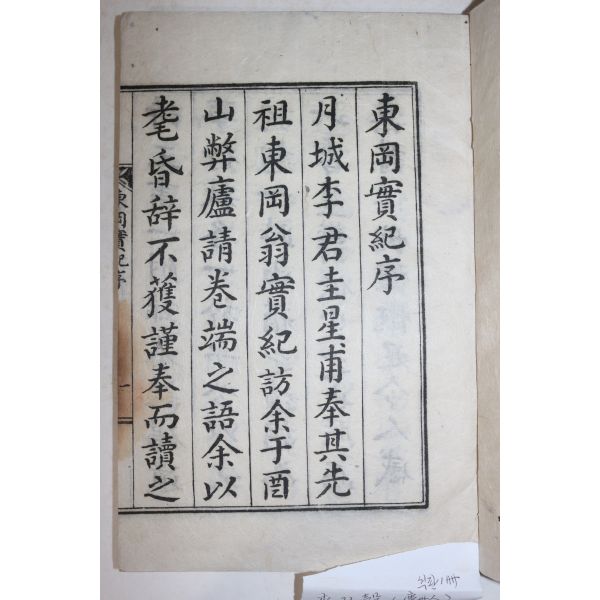 東岡實紀序
月城李君圭星甫奉其先
祖東岡翁實紀訪余于酉
山弊廬請卷端之語余以
耄昏辞不獲謹奉而讀之
東岡實紀序
一